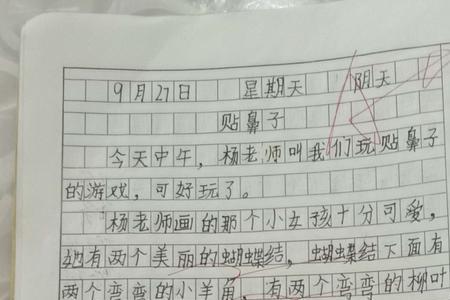 9月27日 星期天 阴天
贴鼻子
今天中午，杨老师叫我们玩贴鼻子
的游戏，可好玩了。
杨老师画的那个小女孩十分可爱，
她有两个美丽的蝴蝶结，蝴蝶结下面有
两个弯弯的小羊角，有两个弯弯的柳叶